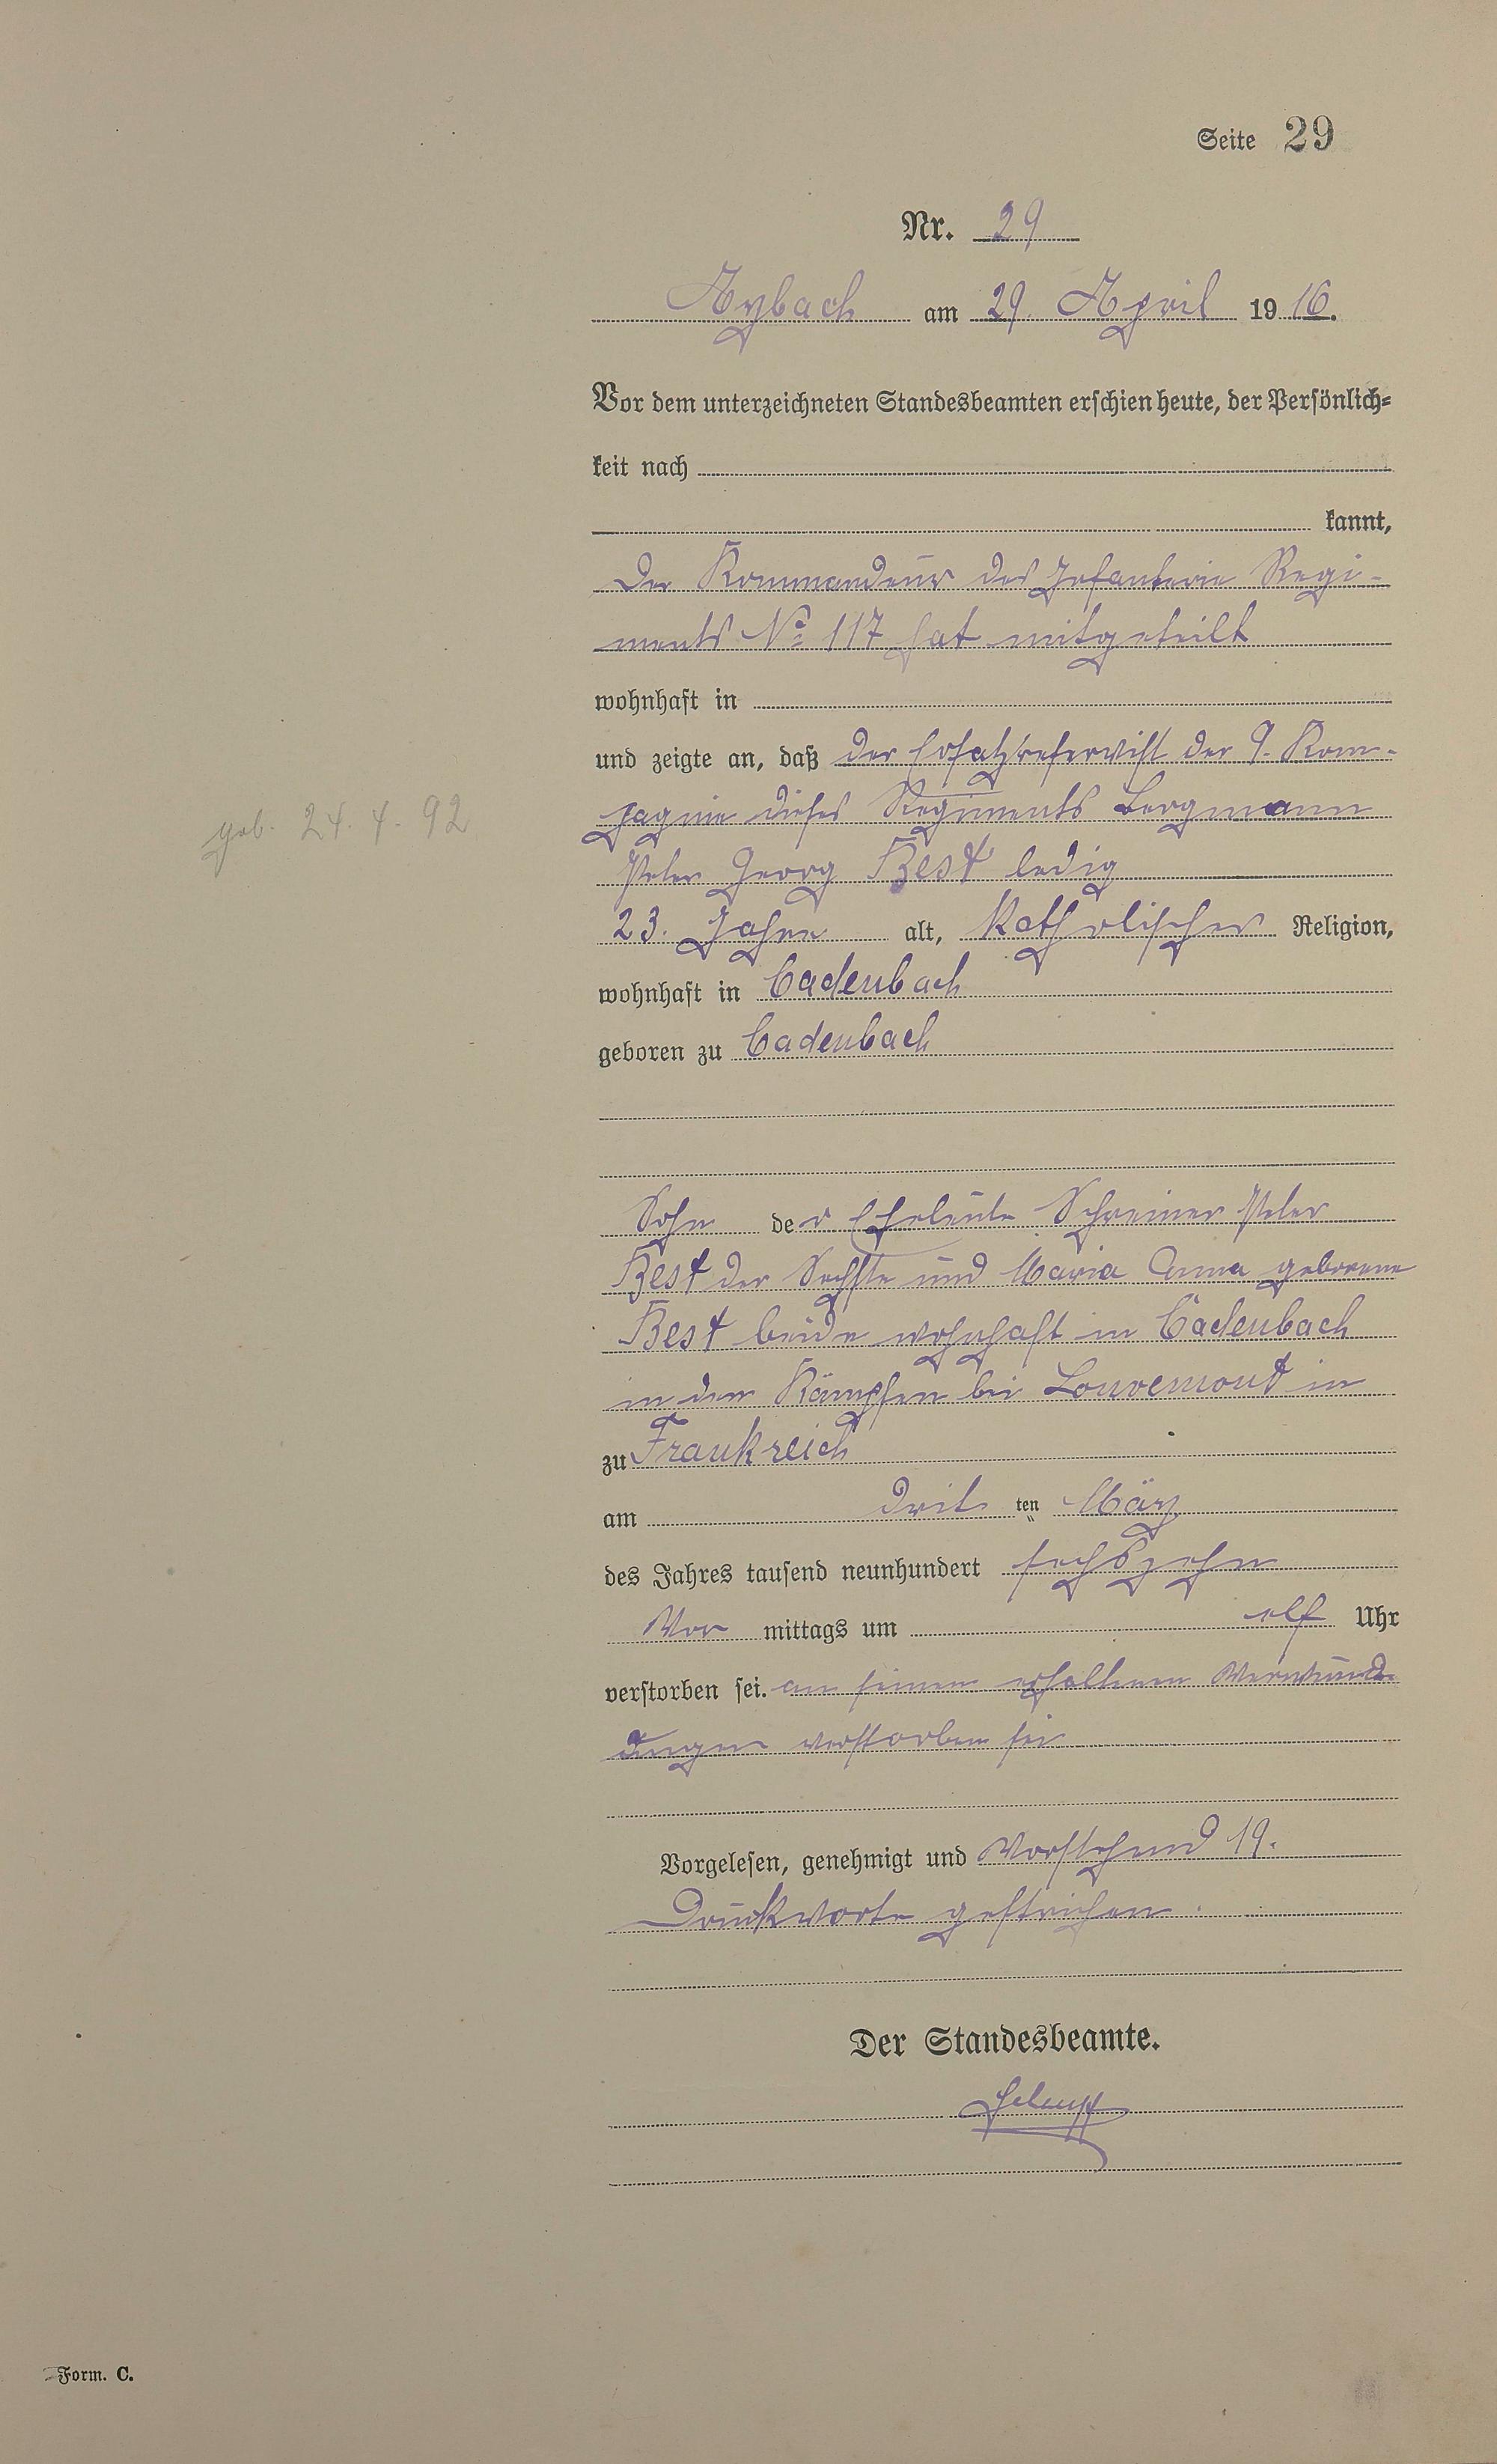 Seite 29
Nr. 29
Arzbach am 29. April 1916.
Vor dem unterzeichneten Standesbeamten erschien heute, der Persönlich-
keit nach
kannt,
Der Kommandeur des Infanterie Regi-
ments No 117 hat mitgeteilt
wohnhaft in
und zeigte an, daß der Ersatzreservist der 9. Kom-
pagnie dieses Regiments Bergmann
geb. 24. 4. 92
Peter Georg Best ledig
23. Jahre alt, katholischer Religion,
wohnhaft in Cadenbach
geboren zu Cadenbach
Sohn der Eheleute Schreiner Peter
Best der Sechste und Maria Anna geborene
Best beide wohnhaft in Cadenbach
in den Kämpfen bei Louvemont in
zu Frankreich
am drit ten März
des Jahres tausend neunhundert sechszehn
Vor mittags um elf Uhr
verstorben sei. an seinen erhaltenen Verwund-
ungen verstorben sei
Vorgelesen, genehmigt und Vorstehend 19.
Druckworte gestrichen.
Der Standesbeamte.
Form. C.